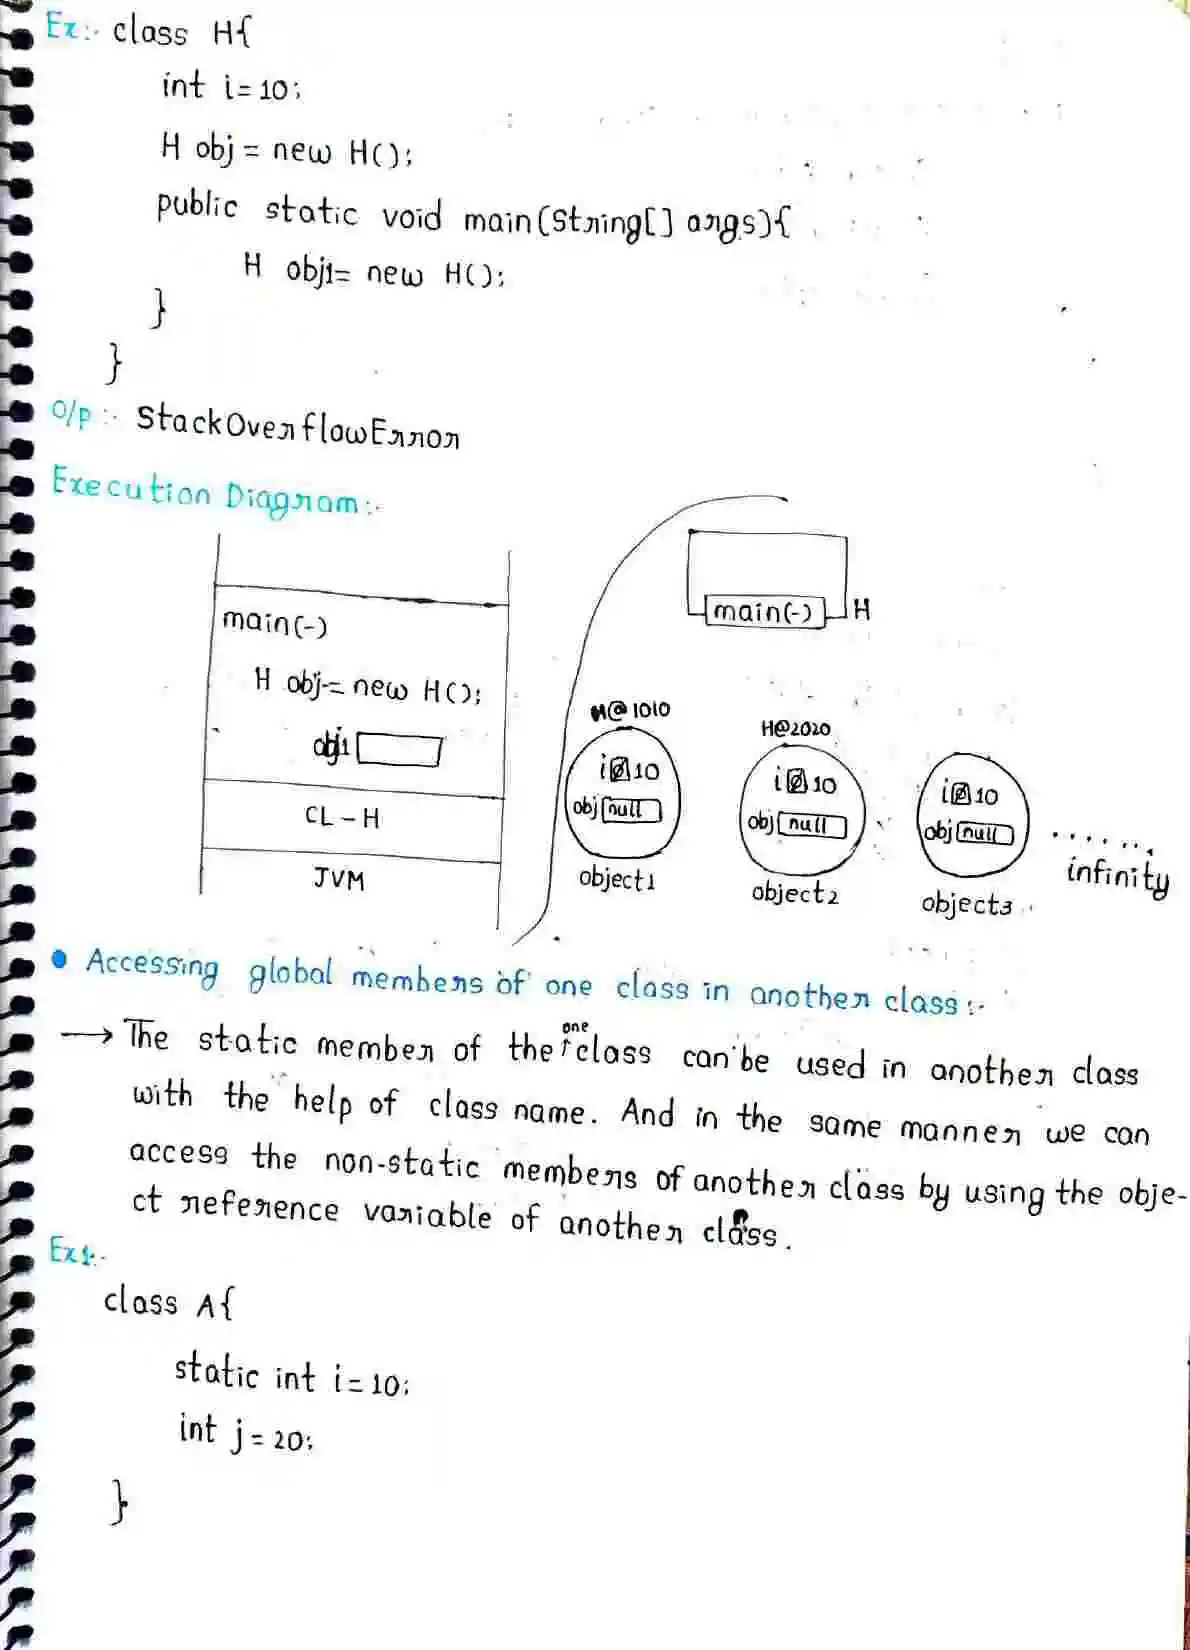 Ex:- class H{
int i=10;
H obj = new H();
public static void main(String[] args){
H obj1= new H();
}
}
O/P :- StackOverflowError
Execution Diagram:-
main(-)
H obj = new H();
obj1
CL - H
JVM
main(-) H
H@1010
i 0 10
obj null
object1
H@2020
i 0 10
obj null
object2
i 0 10
obj null
object3
...... infinity
• Accessing global members of one class in another class:-
→ The static member of the one class can be used in another class
with the help of class name. And in the same manner we can
access the non-static members of another class by using the obje-
ct reference variable of another class.
Ex1:-
class A{
static int i=10;
int j=20;
}